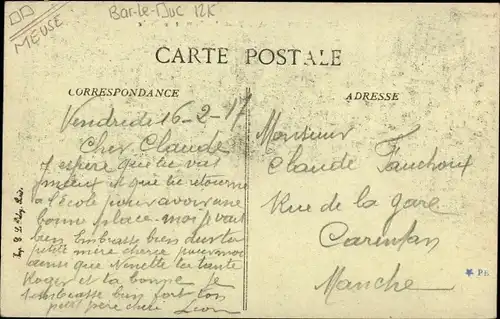 MEUSE
Bar-le-Duc 12K
CARTE POSTALE
CORRESPONDANCE
ADRESSE
Vendredi 16-2-17
Cher Claude
J espère que tu vas
mieux et que tu retourne
a l'école pour avoir une
bonne place - moi je vait
bien Embrasse bien dur ta
petit mère cherie pour moi
ainsi que Ninette ta tante
Roger et ta bonne je
t'embrasse bien fort ton
petit père cheri Leon
Monsieur
Claude Fauchoux
Rue de la gare
Carentan
Manche